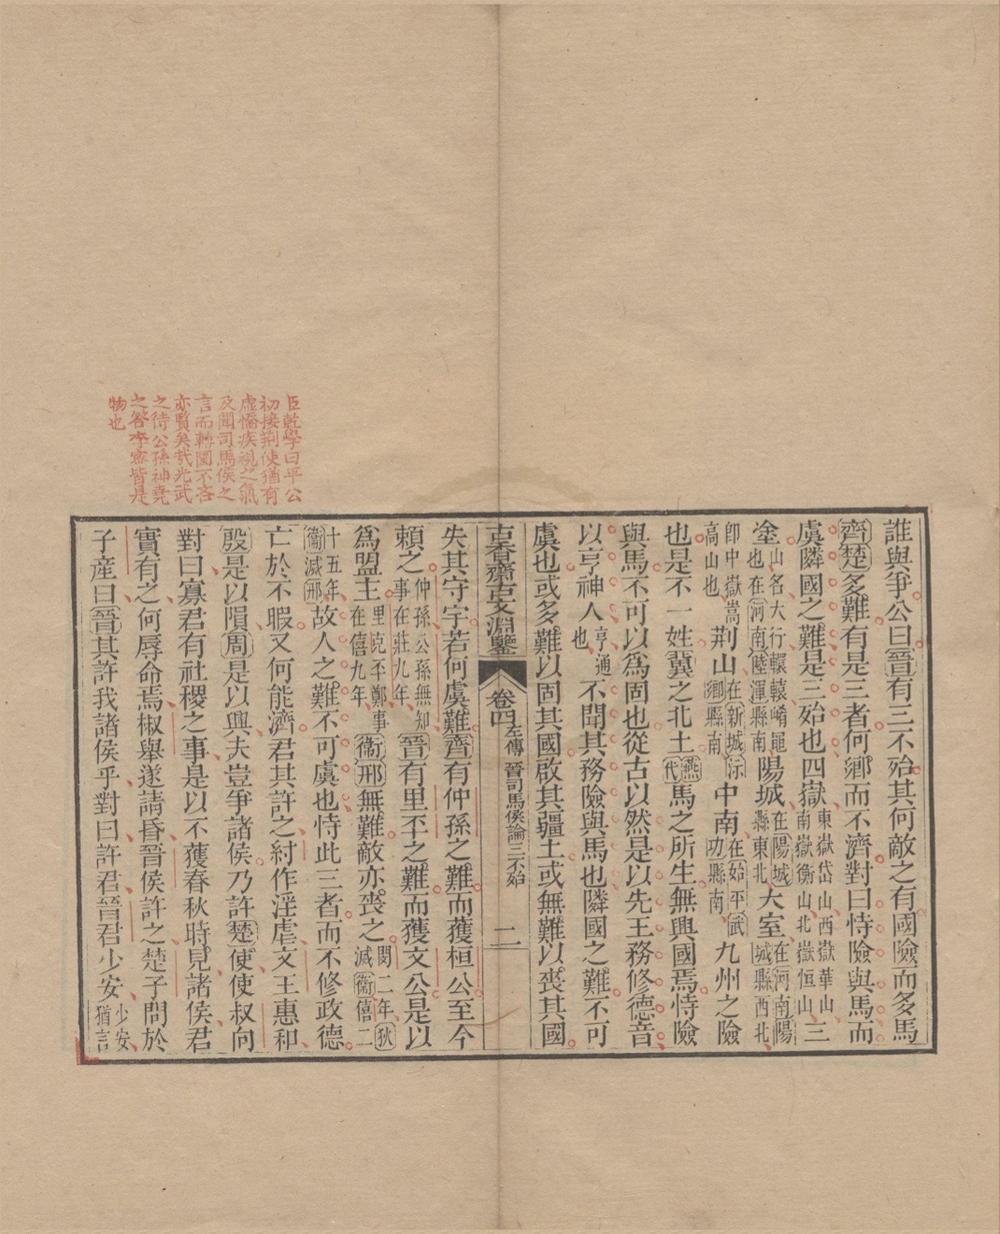 臣乾學曰平公
初接荊使猶有
虛憍疾視之氣
及聞司馬侯之
言而轉圜不吝
亦賢矣哉光武
之待公孫神堯
之答李密皆是
物也
誰與爭公曰晉有三不殆其何敵之有國險而多馬
齊楚多難有是三者何鄉而不濟對曰恃險與馬而
虞隣國之難是三殆也四嶽東嶽岱山西嶽華山南嶽衡山北嶽恒山三
塗山名大行轘轅崤黽也在河南陸渾縣南陽城在陽城縣東北大室在河南陽城縣西北
卽中嶽嵩高山也荆山在新城沶鄉縣南中南在始平武功縣南九州之險
也是不一姓冀之北土燕代馬之所生無興國焉恃險
與馬不可以爲固也從古以然是以先王務修德音
以亨神人亨通也不聞其務險與馬也隣國之難不可
虞也或多難以固其國啟其疆土或無難以喪其國
古香齋古文淵鑒 卷四 左傳 晉司馬侯論三不殆 二
失其守宇若何虞難齊有仲孫之難而獲桓公至今
賴之仲孫公孫無知事在莊九年晉有里丕之難而獲文公是以
爲盟主里克丕鄭事在僖九年衞邢無難敵亦喪之閔二年狄滅衞僖二
十五年衞滅邢故人之難不可虞也恃此三者而不修政德
亡於不暇又何能濟君其許之紂作淫虐文王惠和
殷是以隕周是以興夫豈爭諸侯乃許楚使使叔向
對曰寡君有社稷之事是以不獲春秋時見諸侯君
實有之何辱命焉椒舉遂請昏晉侯許之楚子問於
子產曰晉其許我諸侯乎對曰許君晉君少安少安猶言